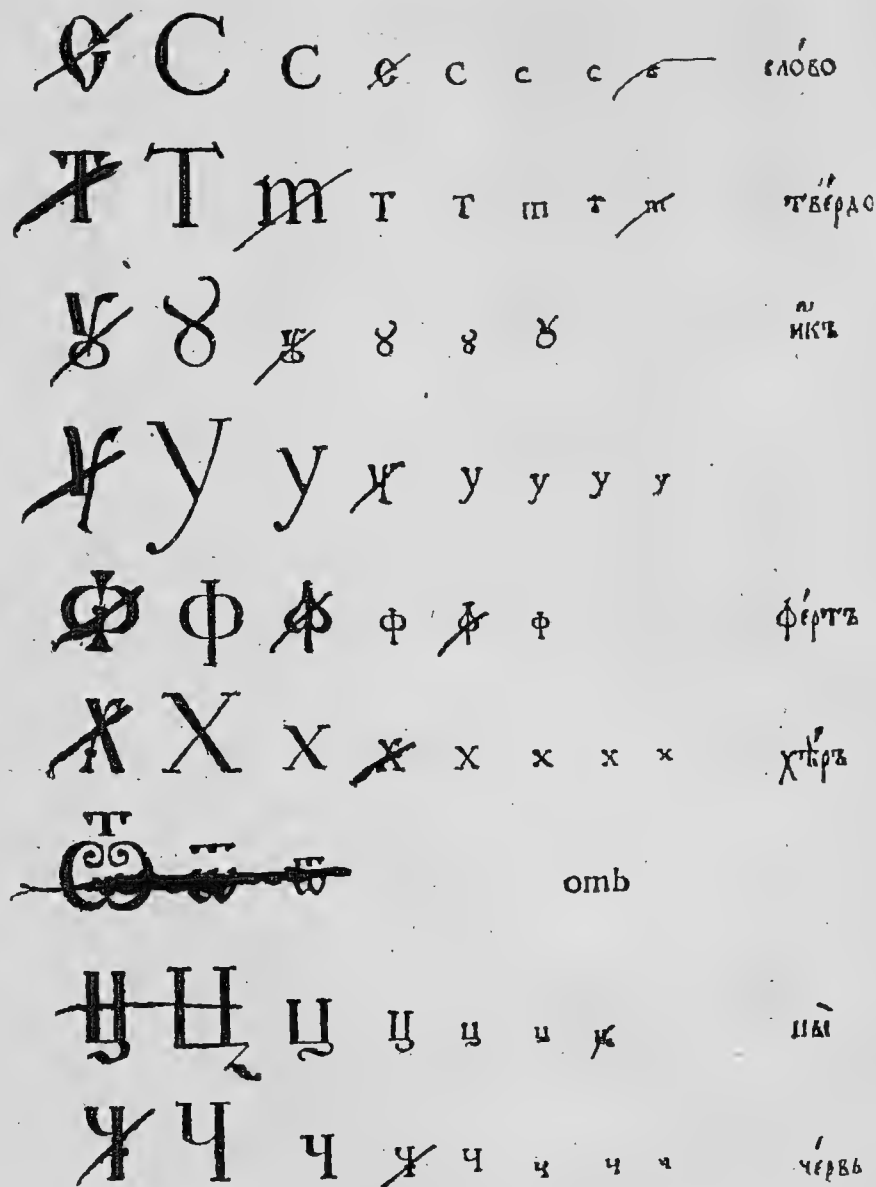 Є С с є с с с с сло́во
Т Т т т т т т т т тве́рдо
Ꙋ Ꙋ ꙋ ꙋ ꙋ ꙋ и҆́къ
У У у у у у у у
Ф Ф ф ф ф ф фе́ртъ
Х Х х х х х х х хѣ́ръ
Ѿ ѿ ѿ отъ
Ц Ц ц ц ц ц ц цы̀
Ч Ч ч ч ч ч ч ч че́рвь